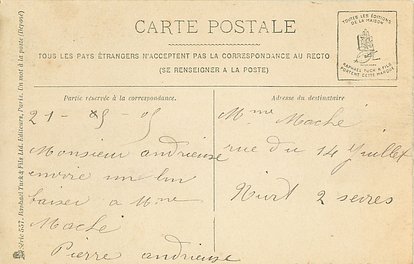 CARTE POSTALE
TOUS LES PAYS ÉTRANGERS N'ACCEPTENT PAS LA CORRESPONDANCE AU RECTO
(SE RENSEIGNER A LA POSTE)
TOUTES LES ÉDITIONS
DE LA MAISON
RAPHAEL TUCK & FILS
PORTENT CETTE MARQUE
Partie réservée à la correspondance.
21 - 05
Monsieur andrieuse
envoie un bon
baiser a Mme
Maché
Pierre andrieuse
Adresse du destinataire
Mme Maché
rue du 14 Juillet
Niort 2 sevres
Série 557. Raphael Tuck & Fils Ltd. Editeurs, Paris. Un mot à la poste (Déposé)